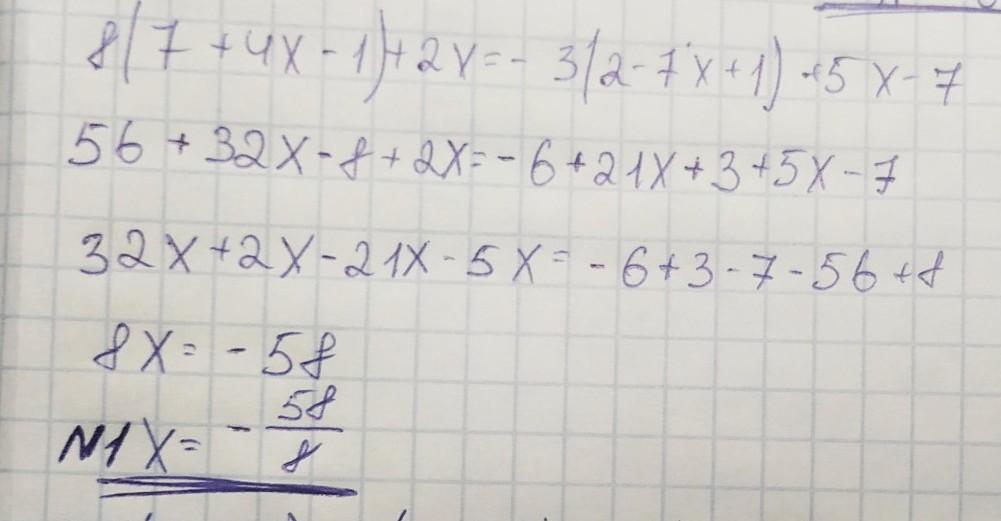 8(7 + 4x - 1) + 2x = - 3(2 - 7x + 1) + 5x - 7
56 + 32x - 8 + 2x = - 6 + 21x + 3 + 5x - 7
32x + 2x - 21x - 5x = - 6 + 3 - 7 - 56 + 8
8x = - 58
N1 x = - 58/8